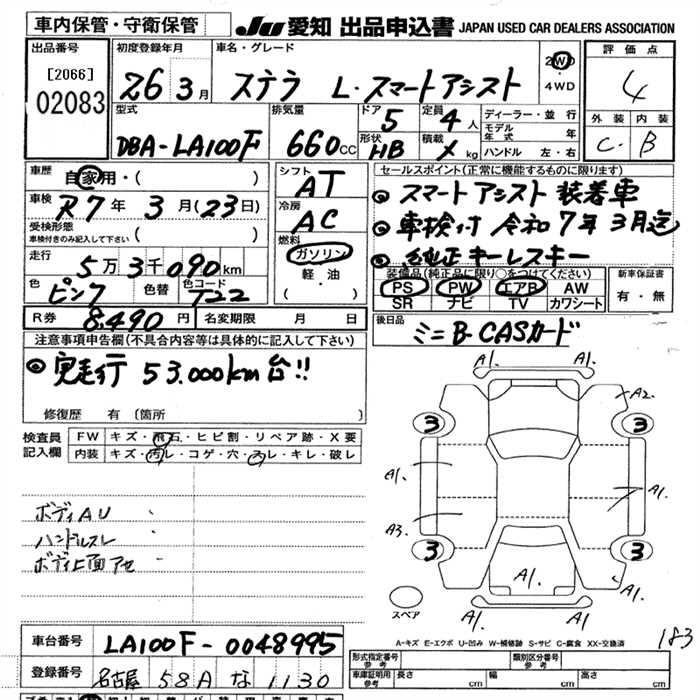 車内保管・守衛保管
JU 愛知 出品申込書 JAPAN USED CAR DEALERS ASSOCIATION
出品番号 初度登録年月 車名・グレード 評価点
[2066]
02083
26 3月 ステラ L・スマートアシスト 2WD・4WD 4
型式 排気量 ドア 定員 ディーラー・並行 外装 内装
DBA-LA100F 660cc 5 4人 モデル年式 年 C・B
形状 HB 積載 kg ハンドル 左・右
車歴 自家用・( ) シフト AT セールスポイント(正常に機能するものに限ります)
車検 R7年3月(23日) 冷房 AC ◎スマートアシスト装着車
受検形態 車検付きのみ記入して下さい ( ) 燃料 ◎車検付 令和7年3月迄
走行 5万3千090km ガソリン ◎純正キーレスキー
軽・油
( )
装備品(純正品に限り○をつけてください) 新車保証書
色 ピンク 色替 色コード T22 PS PW エアB AW 有・無
SR ナビ TV カワシート
R券 8,490円 名変期限 月 日 後日品
ミニB-CASカード
注意事項申告欄(不具合内容等は具体的に記入して下さい)
◎実走行 53.000km台!!
修復歴 有 〔箇所 〕
検査員記入欄 FW キズ・飛石・ヒビ割・リペア跡・X要
内装 キズ・汚レ・コゲ・穴・スレ・キレ・破レ
ボディAU
ハンドルスレ
ボディ上面アセ
A1. A1.
A2.
3 3
A1. A1.
A1.
A3.
3 3
A1. A1
A1. A1.
スペア
A-キズ E-エクボ U-凹み W-補修跡 S-サビ C-腐食 XX-交換済
183
車台番号 LA100F-0048995
登録番号 名古屋 58A な 1130
形式指定番号 参考 類別区分番号 参考
車庫証明用 参考 長さ cm 幅 cm 高さ cm